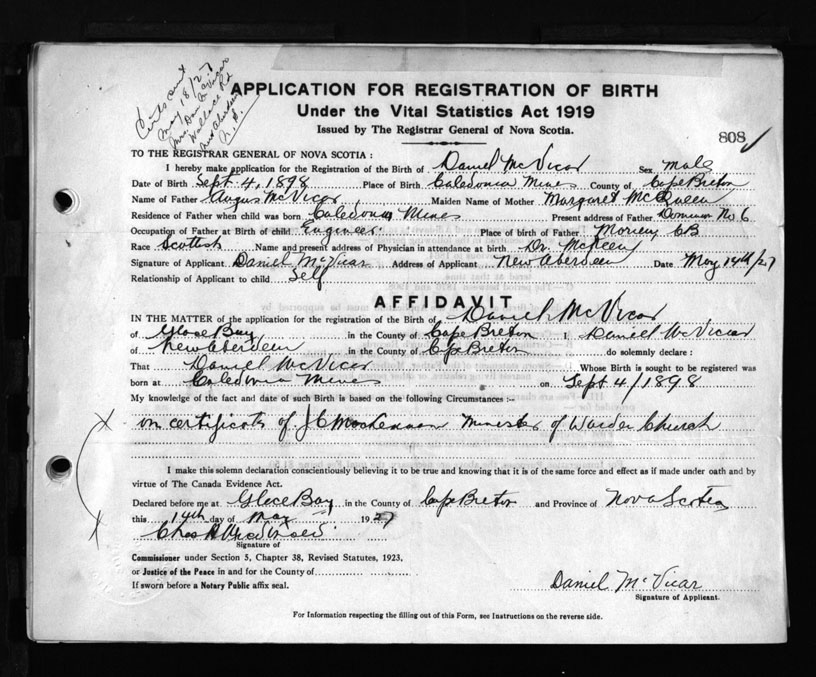 May 18/27
Wallace Rd
APPLICATION FOR REGISTRATION OF BIRTH
Under the Vital Statistics Act 1919
Issued by The Registrar General of Nova Scotia.
808
TO THE REGISTRAR GENERAL OF NOVA SCOTIA :
I hereby make application for the Registration of the Birth of Daniel McVicar Sex male
Date of Birth Sept 4, 1898 Place of Birth Caledonia Mines County of Cape Breton
Name of Father Angus McVicar Maiden Name of Mother Margaret McQueen
Residence of Father when child was born Caledonia Mines Present address of Father Dominion No 6
Occupation of Father at Birth of child Engineer Place of birth of Father Morien, CB
Race Scottish Name and present address of Physician in attendance at birth Dr. McKeen
Signature of Applicant Daniel McVicar Address of Applicant New Aberdeen Date May 14th/27
Relationship of Applicant to child Self
AFFIDAVIT
IN THE MATTER of the application for the registration of the Birth of Daniel McVicar
of Glace Bay in the County of Cape Breton I, Daniel McVicar
of New Aberdeen in the County of Cape Breton do solemnly declare :
That Daniel McVicar Whose Birth is sought to be registered was
born at Caledonia Mines on Sept 4/1898
My knowledge of the fact and date of such Birth is based on the following Circumstances :-
on certificate of J C Minister of Warden Church
I make this solemn declaration conscientiously believing it to be true and knowing that it is of the same force and effect as if made under oath and by
virtue of The Canada Evidence Act.
Declared before me at Glace Bay in the County of Cape Breton and Province of Nova Scotia
this 14th day of May 1927
Chas
Signature of
Commissioner under Section 5, Chapter 38, Revised Statutes, 1923,
or Justice of the Peace in and for the County of
If sworn before a Notary Public affix seal.
Daniel McVicar
Signature of Applicant.
For Information respecting the filling out of this Form, see Instructions on the reverse side.